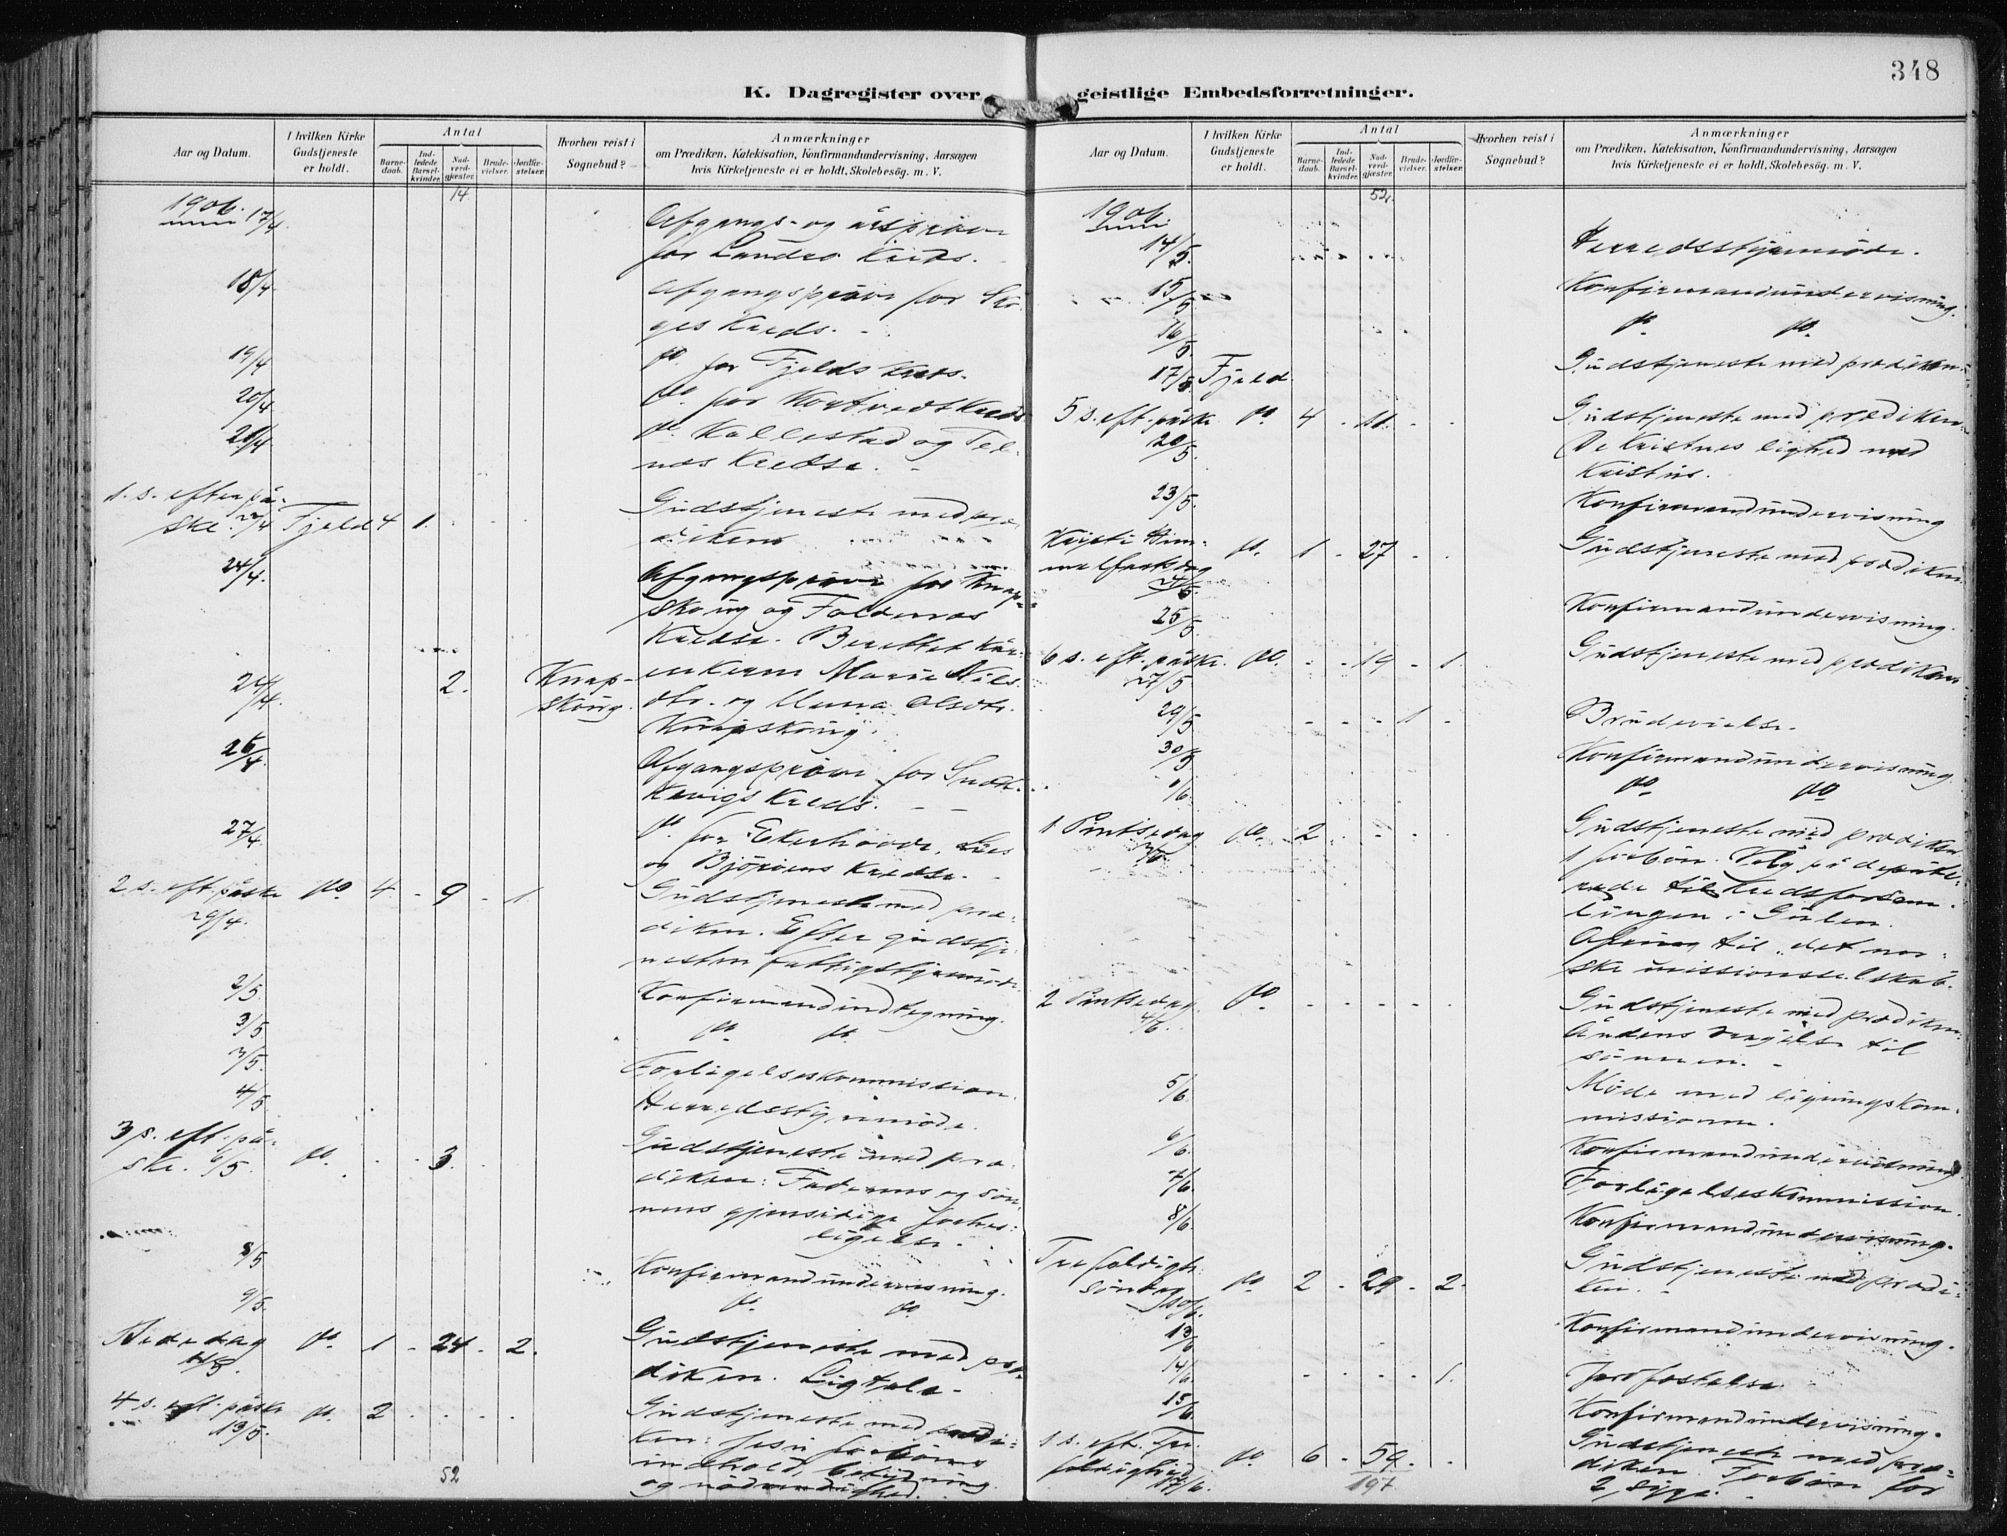 348
K. Dagregister over geistlige Embedsforretninger.
Aar og Datum.
I hvilken Kirke Gudstjeneste er holdt.
Antal
Barne-daab.
Ind-ledede Barsel-kvinder.
Nad-verd-gjæster.
Brude-vielser.
Jordfæ-stelser.
Hvorhen reist i Sognebud?
Anmærkninger
om Prædiken, Katekisation, Konfirmandundervisning, Aarsagen
hvis Kirketjeneste ei er holdt, Skolebesög. m. V.
14
1906. 17/4 Afgangs- og årsprøve
for Landro Kreds.
18/4 Afgangsprøve for Sko-
ges Kreds.
19/4 do. for Fjelds Kreds.
20/4 do. for Kortvedt Kreds
do. Kallestad og Tel-
nes Kredse.
1. s. efter på-
ske 22/4 Fjeld 4 1. Gudstjeneste med præ-
diken
24/4. Afgangsprøve for Knap-
skoug og Foldernes
Kredse. Berettet
24/4 2. Knap-
skoug. Marie Nils-
dtr. og Olsdtr.
Knapskoug.
26/4 Afgangsprøve for
Kreds.
27/4 do. for Ekerhovde, Lies
og Bjørøens Kredse.
2 s. eft. påske do. 4 - 9 - 1 Gudstjeneste med præ-
29/4. diken. Efter gudstje-
nesten fattigstyremøde.
2/5. Konfirmandindtegning.
3/5 do. do.
3/5. Forligelseskommission.
4/5 Herredsstyremøde.
3 s. eft. på-
ske. 6/5. do. 3. Gudstjeneste med præ-
diken: Faderens og søn-
nens gjensidige
8/5 Konfirmandundervisning.
9/5. do. do.
Bededag do. 1 - 24 - 2. Gudstjeneste med præ-
11/5. diken. Ligtale.
4 s. eft. påske do. 2 Gudstjeneste med prædi-
13/5. ken: Jesu forbøns
indehold, betydning
52 og nødvendighed.
Aar og Datum.
I hvilken Kirke Gudstjeneste er holdt.
Antal
Barne-daab.
Ind-ledede Barsel-kvinder.
Nad-verd-gjæster.
Brude-vielser.
Jordfæ-stelser.
Hvorhen reist i Sognebud?
Anmærkninger
om Prædiken, Katekisation, Konfirmandundervisning, Aarsagen
hvis Kirketjeneste ei er holdt, Skolebesög. m. V.
52.
1906.
14/5. Herredsstyremøde.
15/5 Konfirmandundervisning.
16/5. do. do.
17/5 Fjeld. Gudstjeneste med prædiken
5 s. eft. påske do. 4 - - Gudstjeneste med prædiken:
20/5. De kristnes lighed med
Kristus.
23/5. Konfirmandundervisning
Kristi Him-
melfartsdag do. 1 - 27 - Gudstjeneste med prædiken
24/5.
25/5. Konfirmandundervisning.
6 s. eft. påske. do. - - 19 - 1. Gudstjeneste med prædiken
27/5.
29/5 - - - 1 - Brudevielse.
30/5 Konfirmandundervisning.
1/6. do do
1 Pintsedag do. 2 Gudstjeneste med prædiken
3/6. 1 forbøn. Valg på depute-
rede til kredsforsam-
lingen i Gulen.
Ofring til det nor-
ske missionsselskab.
2 Pintsedag do. Gudstjeneste med prædiken:
4/6. Åndens til
5/6. Møde med ligningskom-
missionen.
6/6. Konfirmandundervisning
7/6. Forligelseskommission.
8/6. Konfirmandundervisning.
Trefoldigh.
søndag do. 2 - 29 - 2. Gudstjeneste med prædi-
10/6. ken.
13/6 Konfirmandundervisning.
14/6. 1. Jordfæstelse
15/6. Konfirmandundervisning.
1 s. eft. Tre-
foldighed do. 6 - 59 - Gudstjeneste med præ-
17/6. diken. Forbøn for
197 2 syge.